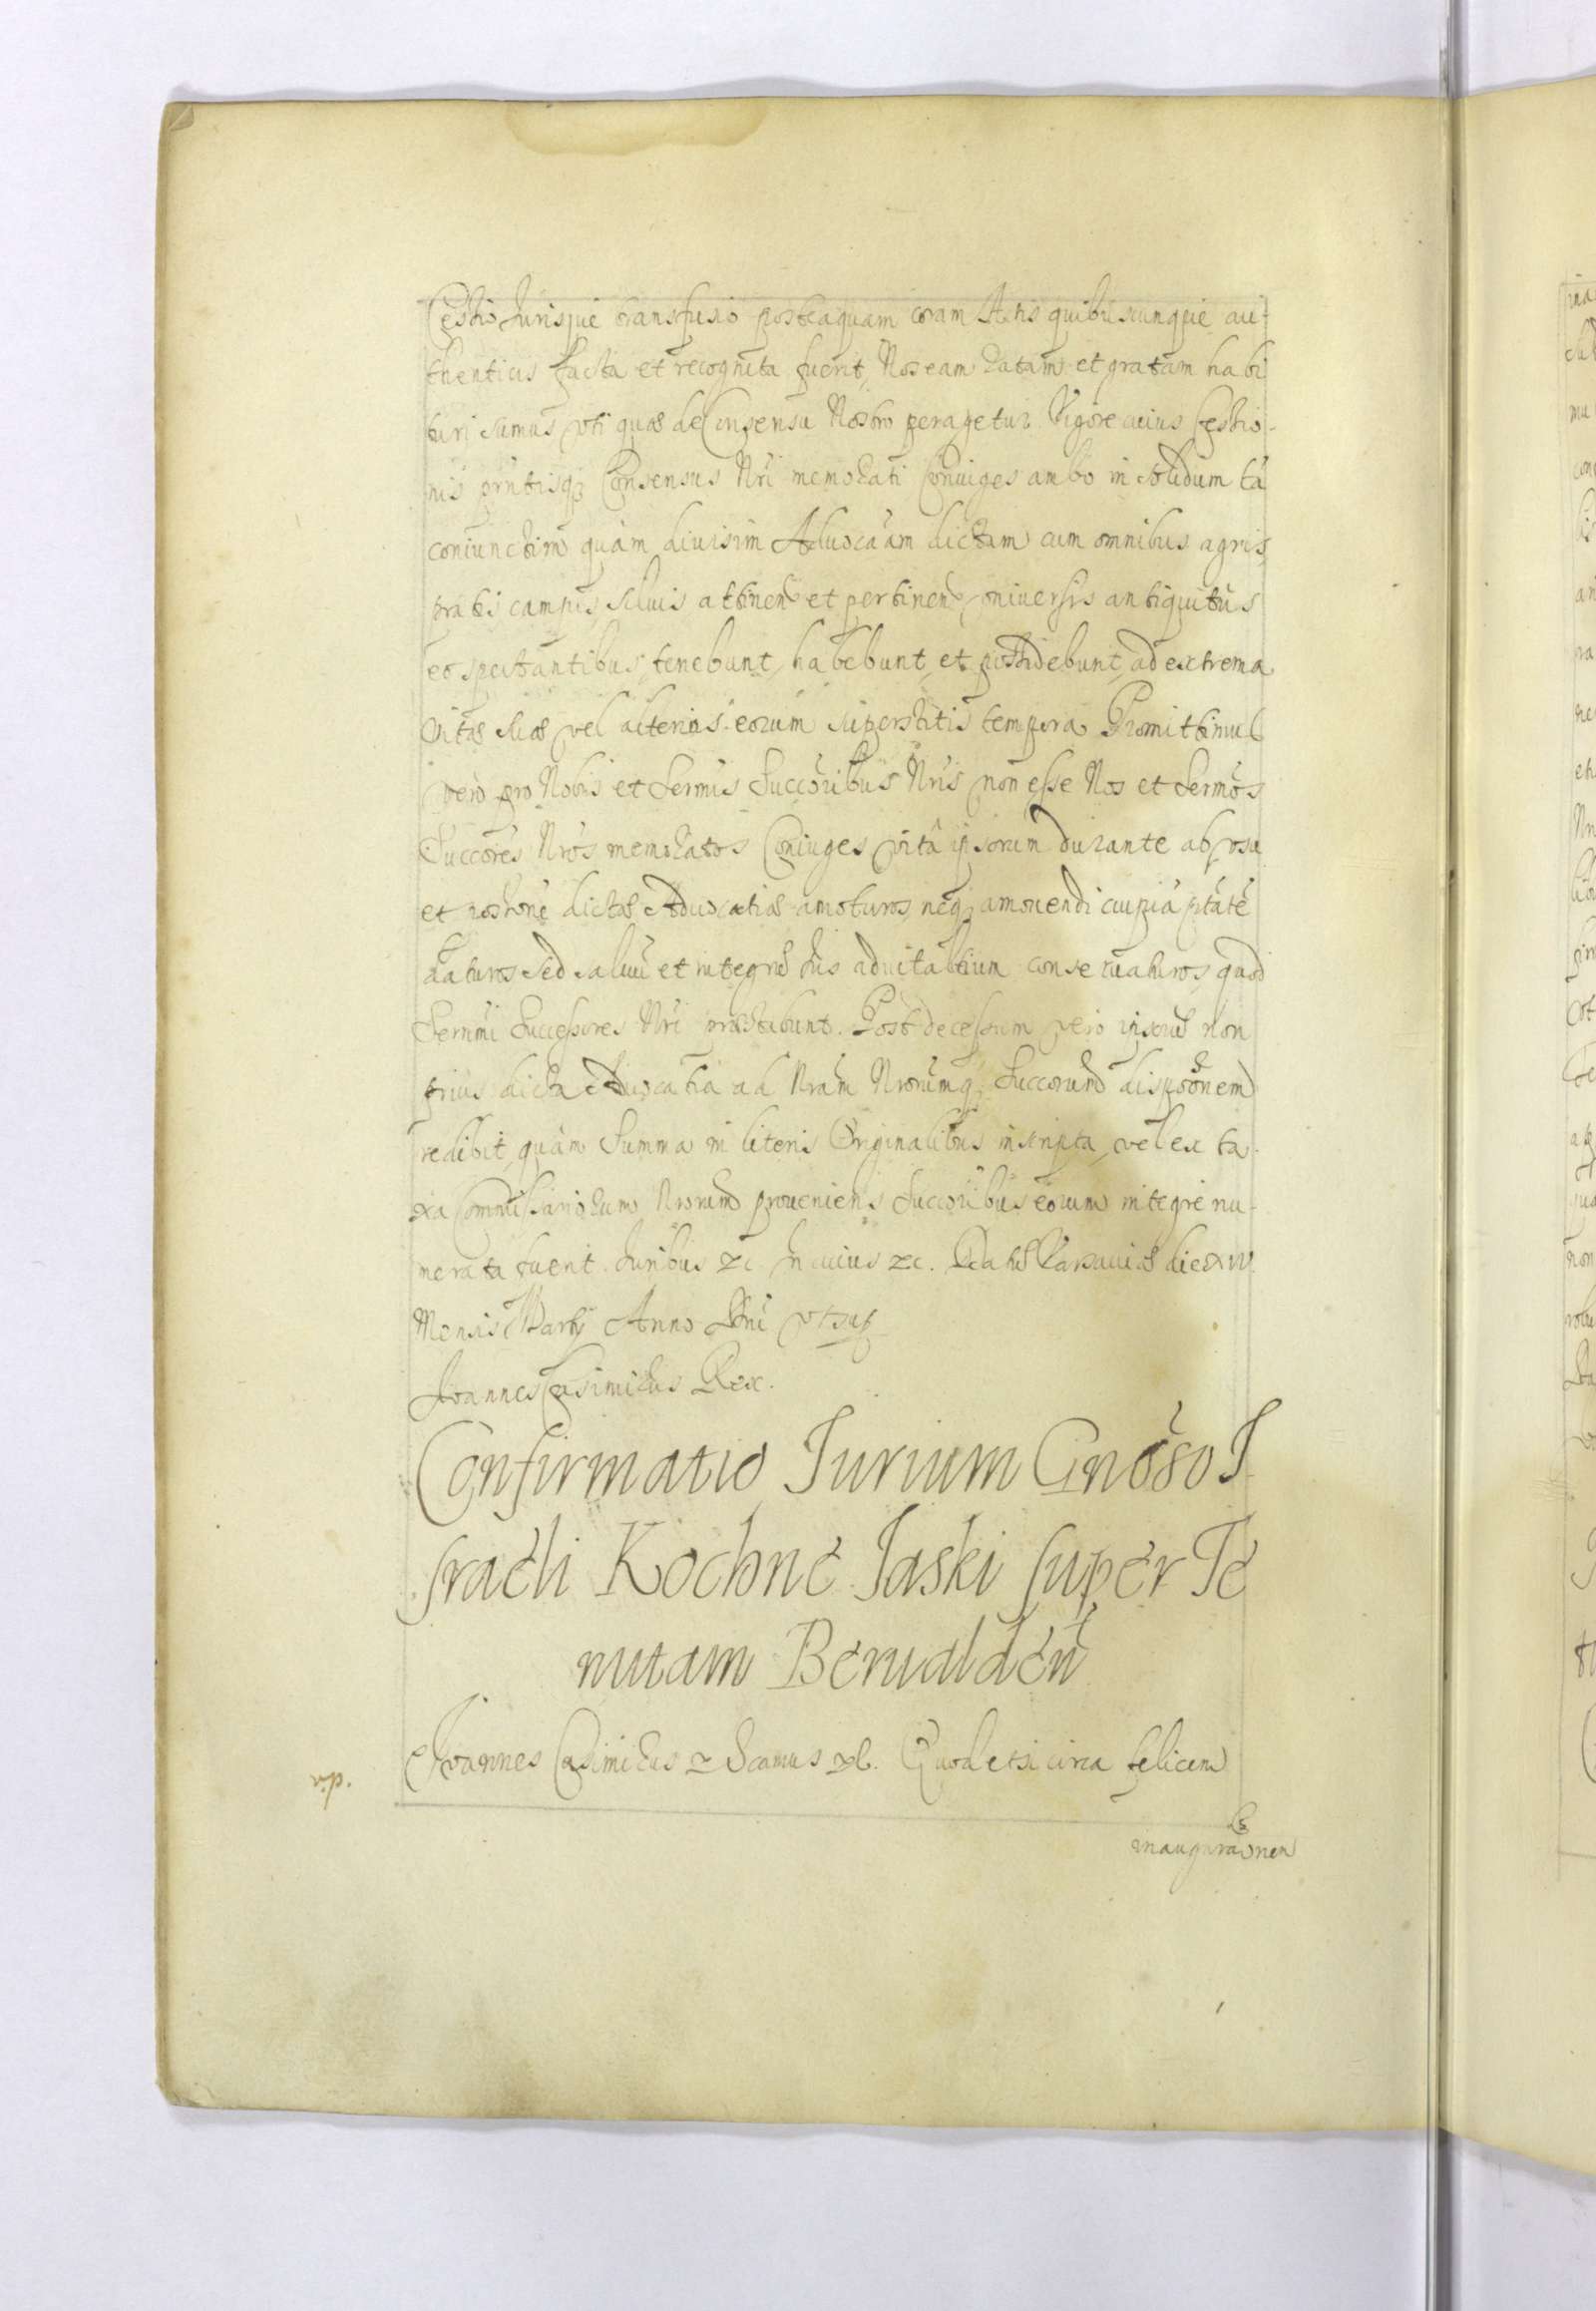 Cessio Jurisque transfusio posteaquam coram Actis quibuscunque au-
thenticis facta et recognita fuerit, Nos eam ratam et gratam habi
turi sumus vti quae de Consensu Nostro peragetur. Vigore cuius Cessio-
nis pr̃ntisq; Consensus Nr̃i memorati Coniuges ambo in solidum tã
coniunctim quàm diuisim Aduocãam dictam cum omnibus agris,
pratis campis, siluis, attinen et pertinen vniuersis antiquitus
eo spectantibus, tenebunt, habebunt, et possidebunt, ad extrema
vitae suae vel alterius eorum superstitis tempora. Promittimus
vero pro Nobis et Sermis Succoribus Nris non esse Nos et Sermos
Succores Nros memoratos Coniuges vitâ ipsorum durante ab vsu
et possone dictae Aduocatiae amoturos, neq; amouendi cuipiã ptatẽ
daturos sed saluũ et integrũ Jus aduitalitium conseruaturos quod
Sernmi Successores Nri praestabunt. Post decessum vero ipsorũ non
prius dicta Aduocatia ad Nram Nrorumq; Succorum disposõnem
redibit, quàm Summa in literis Originalibus inscripta, vel ex ta-
xa Commissariorum Nrorum proueniens Succoribus eorum integrè nu-
merata fuerit. Juribus &c. In cuius &c. Datũ Varsauiae die XIV
Mensis Martij Anno Dni vt sup
Joannes Casimirus Rex.
Confirmatio Jurium Gnõso I-
sraeli Kochne Jaski super Te
nutam Berualden
Joannes Casimirus &c Scamus &c. Quod etsi circa felicem
v.p.
inauguraõnem